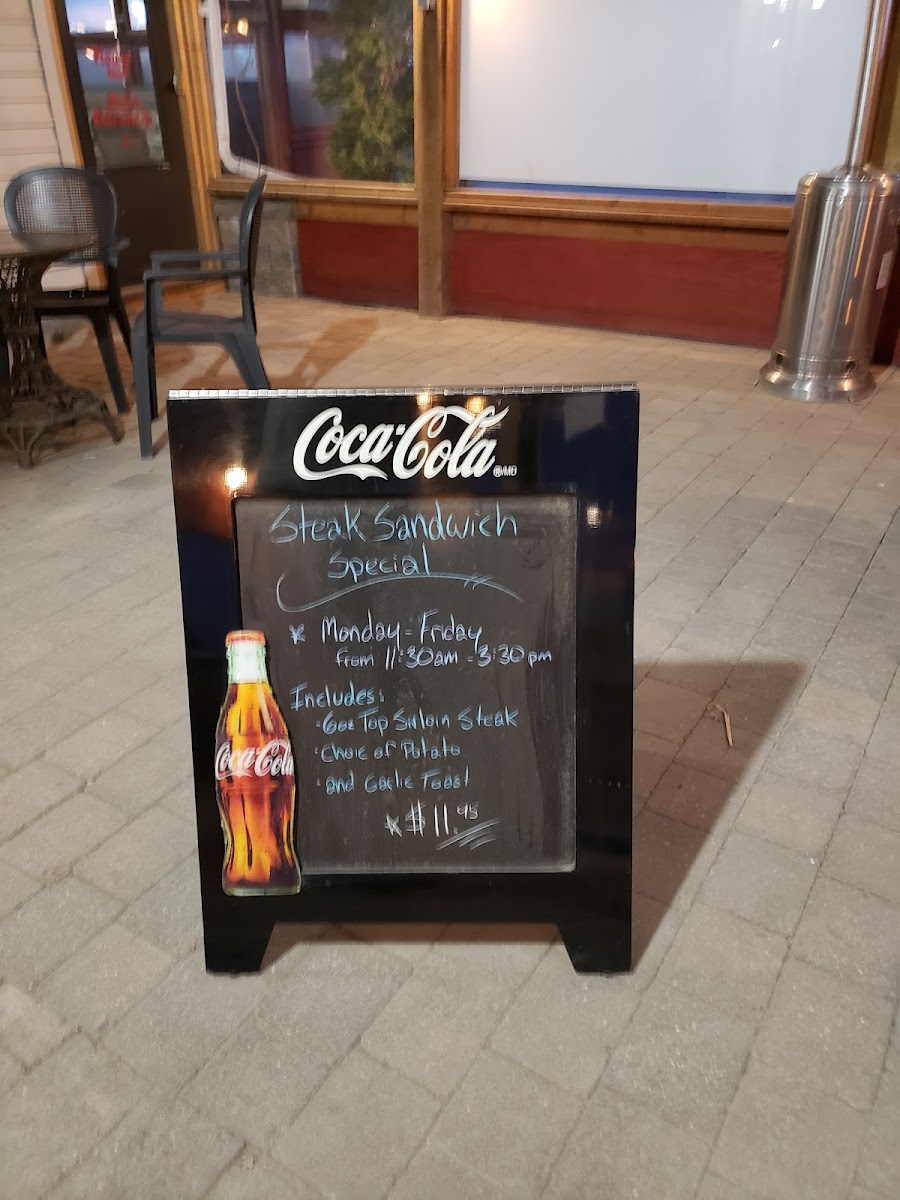 Coca-Cola ®/MD
Steak Sandwich
Special
* Monday - Friday
from 11:30am - 3:30 pm
Includes:
· 6oz Top Sirloin Steak
· Choic of Potato
· and Garlic Toast
* $11.95
Coca-Cola